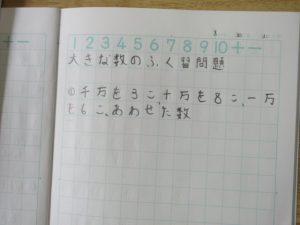 1 2 3 4 5 6 7 8 9 10 十 一
大きな数のふく習問題
① 千万を3こ、十万を8こ、一万
を6こ、あわせた数